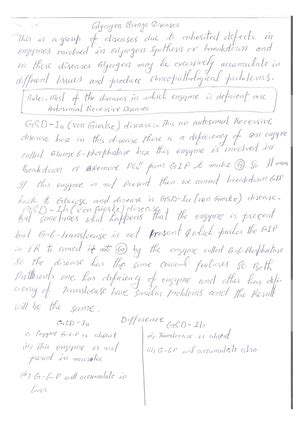 Glycogen Storage Diseases
This is a group of diseases due to inherited defects in
enzymes involved in Glycogen Synthesis or breakdown and
in these diseases Glycogen may be excessively accumulate in
different tissues and produce clinicopathological problems.
Rule:- Most of the diseases in which enzyme is deficient are
Autosomal Recessive Diseases
GSD-Ia (von Gierke) disease:- This an autosomal Recessive
disease here in this disease there is a deficiency of an enzyme
called Glucose 6-phosphatase here this enzyme is involved in
breakdown or Remove from G6P to make G So
If this enzyme is not present then we cannot breakdown G6P
back to Glucose and disease is GSD-Ia (von Gierke) disease.
GSD-Ib (von Gierke) disease
but sometimes what happens that the enzyme is present
but G-6-translocase is not present which pushes the G6P
in ER to convert it into G by the enzyme called G-6-Phosphatase
So the disease has the same clinical features So Both
Patients one has deficiency of enzyme and other has defi-
ciency of Translocase have similar problems and the Result
will be the same.
Difference
GSD-Ia GSD-Ib
i) Enzyme G-6-P is absent i) Translocase is absent
ii) This enzyme is not ii) G-6P will accumulate also
present in muscles
iii) G-6-P will accumulate in
liver